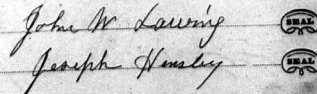 John W Lawing SEAL
Joseph Hensley SEAL